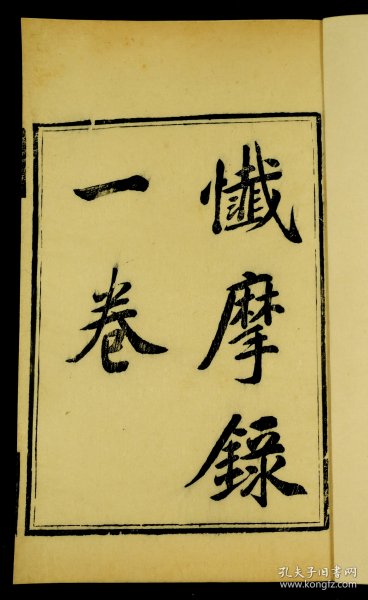 懺摩錄
一卷
孔夫子旧书网
www.kongfz.com